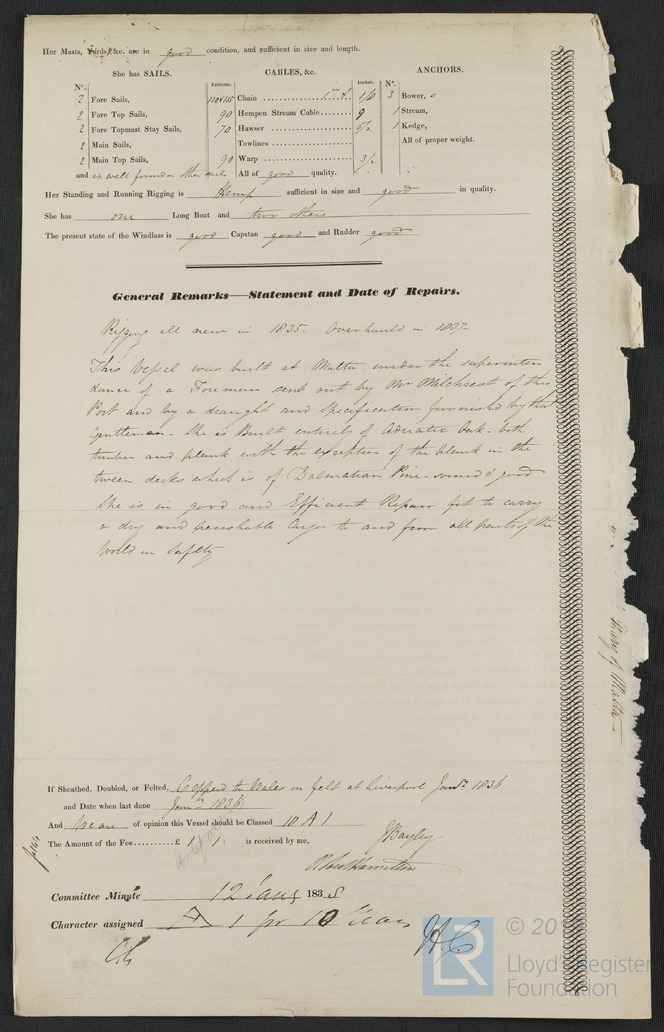 Her Masts, Yards, &c. are in good condition, and sufficient in size and length.
She has SAILS.
CABLES, &c.
ANCHORS.
Nº.
Fathoms.
Inches.
Nº.
2 Fore Sails,
2 Fore Top Sails,
2 Fore Topmast Stay Sails,
2 Main Sails,
2 Main Top Sails,
and as well found in other sails
Chain
Hempen Stream Cable 90 9
Hawser 70 5/2
Towlines
Warp 90 3/2
All of good quality.
3 Bower,
1 Stream,
1 Kedge,
All of proper weight.
Her Standing and Running Rigging is Hemp sufficient in size and good in quality.
She has one Long Boat and two others
The present state of the Windlass is good Capstan good and Rudder good
General Remarks—Statement and Date of Repairs.
Rigging all new in 1835. Overhauld in 1837
This Vessel was built at Malta under the superinten
dance of a Foreman sent out by Mr Milchrest of this
Port and by a draught and specification furnishd by that
Gentleman - She is Built entirely of Adriatic Oak - both
timber and plank with the exception of the plank in the
tween decks which is of Dalmatian Pine - sound & good
She is in good and Efficient Repair fit to carry
a dry and perishable Cargo to and from all parts of the
World in Safety
Ring of Malta
If Sheathed, Doubled, or Felted, Copperd to Wales on felt at Liverpool Jany. 1836
and Date when last done Jany 1836
And We are of opinion this Vessel should be Classed 10 A 1
The Amount of the Fee..........£ 1 : 1 : is received by me,
J Bayley
Hamilton
Committee Minute 12 Jany 1838
Character assigned A 1 for 10 Years
LR
© 20
Lloyd's Register
Foundation